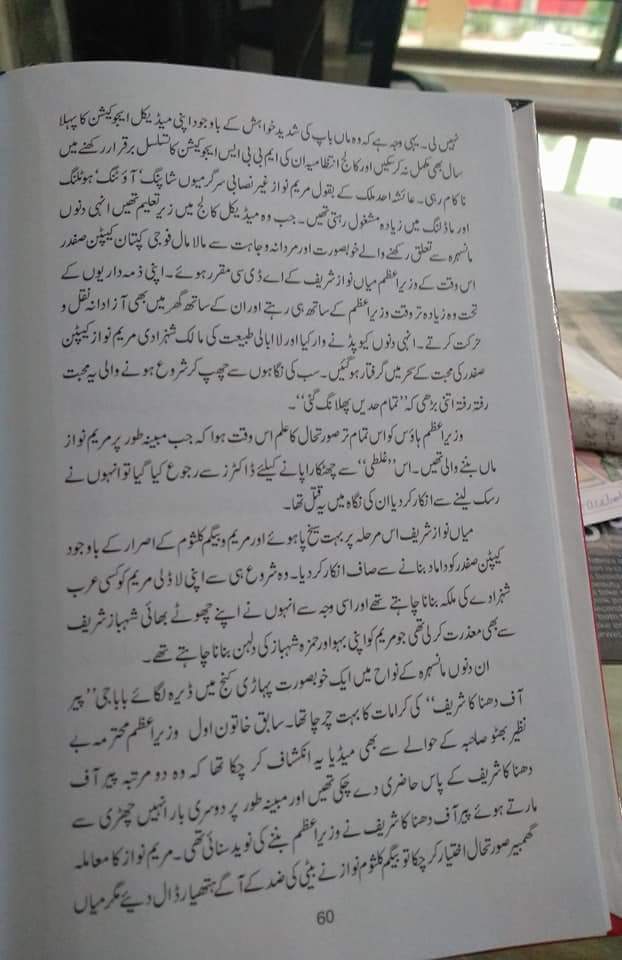 نہیں لی۔ یہی وجہ ہے کہ وہ ماں باپ کی شدید خواہش کے باوجود اپنی میڈیکل ایجوکیشن کا پہلا
سال بھی مکمل نہ کر سکیں اور کالج انتظامیہ ان کی ایم بی بی ایس ایجوکیشن کا تسلسل برقرار رکھنے میں
ناکام رہی۔ عائشہ احد ملک کے بقول مریم نواز غیر نصابی سرگرمیوں شاپنگ' آؤٹنگ' ہوٹلنگ
اور ماڈلنگ میں زیادہ مشغول رہتی تھیں۔ جب وہ میڈیکل کالج میں زیر تعلیم تھیں انہی دنوں
مانسہرہ سے تعلق رکھنے والے خوبصورت اور مردانہ وجاہت سے مالا مال فوجی کپتان کیپٹن صفدر
اس وقت کے وزیراعظم میاں نواز شریف کے اے ڈی سی مقرر ہوئے۔ اپنی ذمہ داریوں کے
تحت وہ زیادہ تر وقت وزیراعظم کے ساتھ ہی رہتے اور ان کے ساتھ گھر میں بھی آزادانہ نقل و
حرکت کرتے۔ انہی دنوں کیوپڈ نے وار کیا اور لا ابالی طبیعت کی مالک شہزادی مریم نواز کیپٹن
صفدر کی محبت کے سحر میں گرفتار ہو گئیں۔ سب کی نگاہوں سے چھپ کر شروع ہونے والی یہ محبت
رفتہ رفتہ اتنی بڑھی کہ ''تمام حدیں پھلانگ گئی''۔
وزیراعظم ہاؤس کو اس تمام تر صورتحال کا علم اس وقت ہوا کہ جب مبینہ طور پر مریم نواز
ماں بننے والی تھیں۔ اس ''غلطی'' سے چھٹکارا پانے کیلئے ڈاکٹرز سے رجوع کیا گیا تو انہوں نے
رسک لینے سے انکار کر دیا ان کی نگاہ میں یہ قتل تھا۔
میاں نواز شریف اس مرحلہ پر بہت سیخ پا ہوئے اور مریم و بیگم کلثوم کے اصرار کے باوجود
کیپٹن صفدر کو داماد بنانے سے صاف انکار کر دیا۔ وہ شروع ہی سے اپنی لاڈلی مریم کو کسی عرب
شہزادے کی ملکہ بنانا چاہتے تھے اور اسی وجہ سے انہوں نے اپنے چھوٹے بھائی شہباز شریف
سے بھی معذرت کر لی تھی جو مریم کو اپنی بہو اور حمزہ شہباز کی دلہن بنانا چاہتے تھے۔
ان دنوں مانسہرہ کے نواح میں ایک خوبصورت پہاڑی کنج میں ڈیرہ لگائے بابا جی ''پیر
آف دھنکا شریف'' کی کرامات کا بہت چرچا تھا۔ سابق خاتون اول وزیراعظم محترمہ بے
نظیر بھٹو صاحبہ کے حوالے سے بھی میڈیا یہ انکشاف کر چکا تھا کہ وہ دو مرتبہ پیر آف
دھنکا شریف کے پاس حاضری دے چکی تھیں اور مبینہ طور پر دوسری بار انہیں چھڑی سے
مارتے ہوئے پیر آف دھنکا شریف نے وزیراعظم بننے کی نوید سنائی تھی۔ مریم نواز کا معاملہ
گھمبیر صورتحال اختیار کر چکا تو بیگم کلثوم نواز نے بیٹی کی ضد کے آگے ہتھیار ڈال دیئے مگر میاں
60